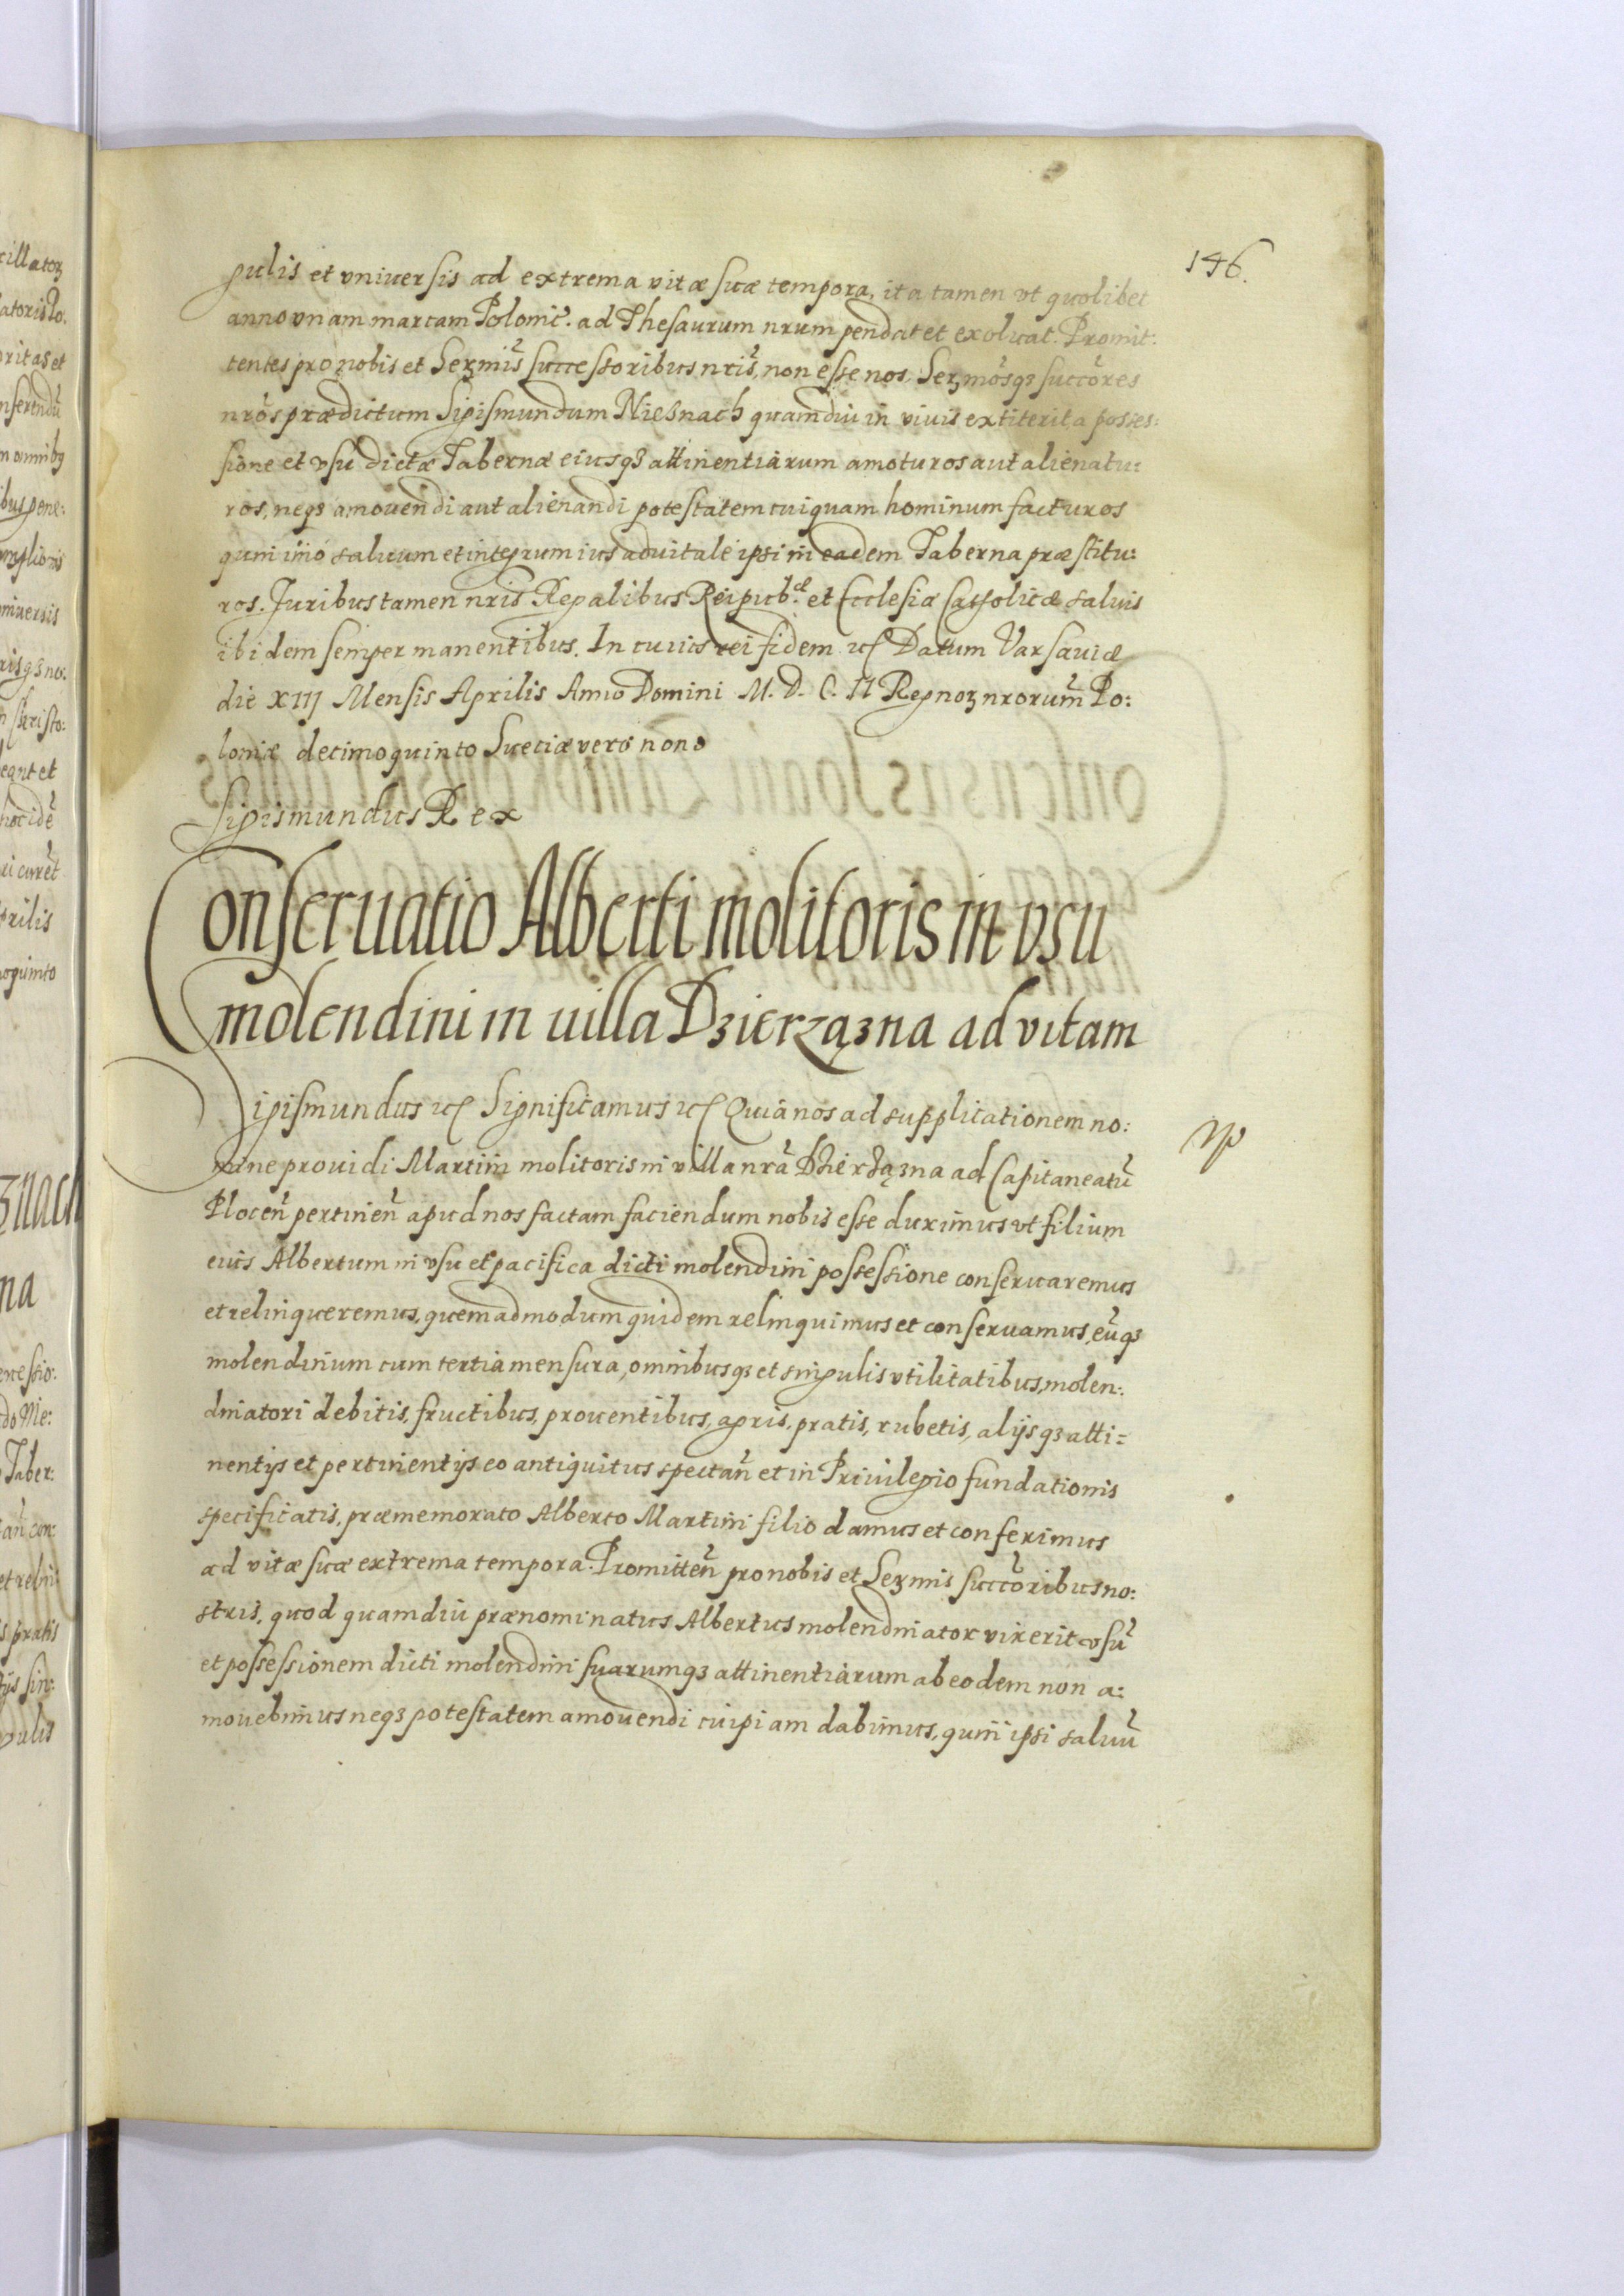 146.
gulis et vniuersis ad extrema vitæ suæ tempora, ita tamen vt quolibet
anno vnam marcam Polonic̃. ad Thesaurum nrum pendat et exoluat. Promit:
tentes pro nobis et Serꝫmis̃ successoribus nris̃, non esse nos, Serꝫmosq̃ꝫ succõres
nrõs prædictum Sigismundum Nieznach quamdiu in viuis extiterit a posses:
sione et vsu dictæ Tabernæ eiusqꝫ attinentiarum amoturos aut alienatu:
ros, neqꝫ amouendi aut alienandi potestatem cuiquam hominum facturos
quin imo saluum et integrum ius aduitale ipsi in eadem Taberna præstitu:
ros. Juribus tamen nris Regalibus Reipub.æ et Ecclesiæ Catholicæ saluis
ibidem semper manentibus. In cuius rei fidem etc Datum Varsauiæ
die XIII Mensis Aprilis Anno Domini M. D. C. II Regnoꝫ nrorum̃ Po:
loniæ decimoquinto Sueciæ vero nono
Sigismundus Rex
Conseruatio Alberti molitoris in vsu
molendini in uilla Dzierzązna ad vitam
Sigismundus etc Significamus etc Quia nos ad supplicationem no:
mine prouidi Martini molitoris in villa nrã Dzierzązna ad Capitaneatũ
Plocen̄ pertinen̄ apud nos factam faciendum nobis esse duximus vt filium
eius Albertum in vsu et pacifica dicti molendini possessione conseruaremus
et relinqueremus, quemadmodum quidem relinquimus et conseruamus, eũqꝫ
molendinum cum tertia mensura, omnibusqꝫ et singulis vtilitatibus, molen:
dinatori debitis, fructibus, prouentibus, agris, pratis, rubetis, alijsqꝫ atti=
nentijs et pertinentijs eo antiquitus spectan̄ et in Priuilegio fundationis
specificatis, præmemorato Alberto Martini filio damus et conferimus
ad vitæ suæ extrema tempora. Promitten̄ pro nobis et Serꝫmis succõribus no:
stris, quod quamdiu prænominatus Albertus molendinator vixerit vsũ
et possessionem dicti molendini suarumqꝫ attinentiarum ab eodem non a:
mouebimus neqꝫ potestatem amouendi cuipiam dabimus, quin ipsi saluũ